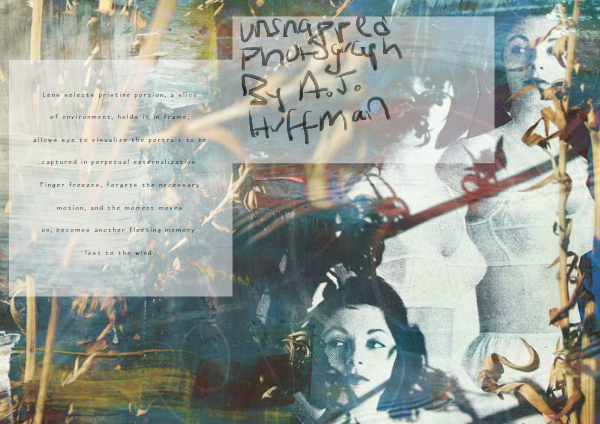 unsnapped
photograph
By A.J.
Huffman
Lens selects pristine portion, a slice
of environment, holds it in frame,
allows eye to visualize the portrait to be
captured in perpetual externalization.
Finger freezes, forgets the necessary
motion, and the moment moves
on, becomes another fleeting memory
lost to the wind.